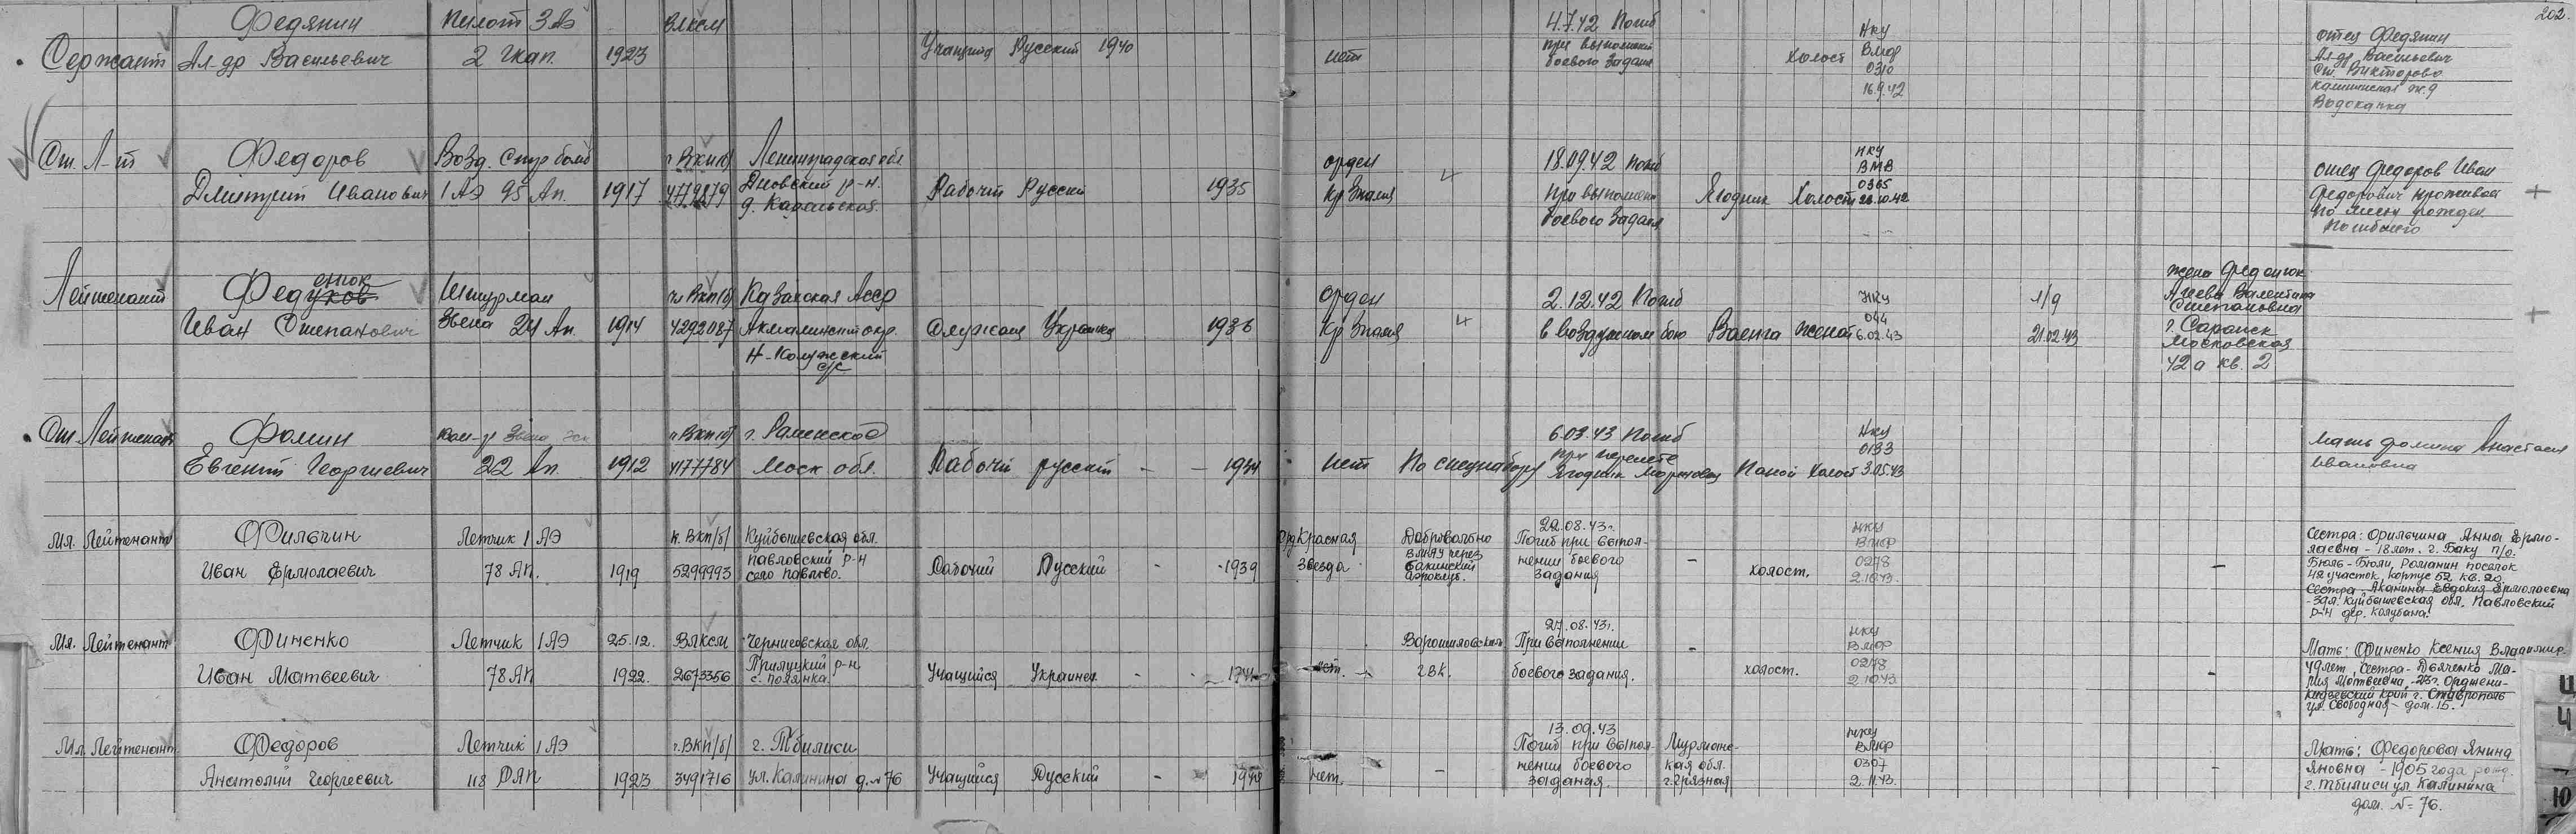 202.
Федянин Пилот 3 АЭ ВЛКСМ 4.7.42 Погиб НКУ отец Федянин
Сержант Ал-др Васильевич 2 гкап. 1923 Учащийся Русский 1940 нет при выполнении холост ВМФ Ал-др Васильевич
боевого задания 0310 ст. Викторово
16.9.42 Калининская ж.д
Водокачка
Ст. Л-т Федоров Возд. Стр бомб ч ВКП(б) Ленинградская обл орден 18.09.42 Погиб НКУ ВМФ отец Федоров Иван
Дмитрий Иванович 1 АЭ 95 Ап. 1917 Дновский р-н. Рабочий Русский 1935 Кр Знамя 4 при выполнен Ягодник Холост 0365 Федорович проживает
боевого задания 28.10.42 по месту рожден
погибшего
Лейтенант Федуков енюк Штурман чл ВКП(б) Казакская Асср орден 2.12.42 Погиб НКУ 1/9 жена Федонюк
Иван Степанович Звена 24 Ап. 1914 4293087 Акмалинский окр. Служащ Украинец 1936 Кр Знамя 4 в воздушном бою Ваенга женат 044 6.02.43 21.02.43 Валентина
Н-Калужский Степановна
с/с г. Саранск
Московская
42а кв. 2
Ст. Лейтенант Фомин Ком-р Звена ч ВКП(б) г. Раменское 6.03.43 Погиб НКУ Мать Фомина Анастасия
Евгений Георгиевич 22 Ап. 1912 4177784 Моск. обл. Рабочий русский - - нет По спецнабору при перелете Холост 0133 3.05.43 Ивановна
Ягодник
Мл. Лейтенант Фильчин Летчик 1 АЭ к. ВКП/б/ Куйбышевская обл. орд Красная Добровольно 22.08.43г. НКУ Сестра: Фильчина Анна Ермо-
Иван Ермолаевич 78 АП. 1919 5299993 Павловский р-н Рабочий Русский - -1939 Звезда ВМАУ через Погиб при выпол- - холост. ВМФ - лаевна - 18 лет. г. Баку п/о.
село Павлово. Бакинский нении боевого 0278 Бюль-Бюли, Романин поселок
аэроклуб. задания 2.10.43. 42 участок, корпус 52 кв. 20.
Сестра - Яканина Евдокия Ермолаевна
Куйбышевская обл. Павловский
р-н дер. Колубана.
Мл. Лейтенант Финенко Летчик 1 АЭ 25.12. ВЛКСМ Черниговская обл. Ворошиловский 27.08.43г. НКУ Мать: Финенко Ксения Владимир.
Иван Матвеевич 78 АП 1922. 2673356 Прилуцкий р-н Учащийся Украинец - - нет. РВК. При выполнении - холост. ВМФ - 49 лет, Сестра - Дьяченко Ма-
с. Полянка. боевого задания. 0278 рия Матвеевна, - 23г. Орджени-
2.10.43 кидзевский край г. Ставрополь
ул. Свободная - дом. 15.
Мл. Лейтенант Федоров Летчик 1 АЭ г. Тбилиси 13.09.43 НКУ Мать: Федорова Янина
Анатолий Георгиевич 118 РАП 1923 3491716 ул. Калинина д. № 76 Учащийся Русский - нет. - Погиб при выпол- Мурманс- ВМФ - Яновна - 1905 года рожд.
нении боевого кая обл. 0307 г. Тбилиси ул Калинина
задания. г. Грязная 2.11.43. дом. № 76.